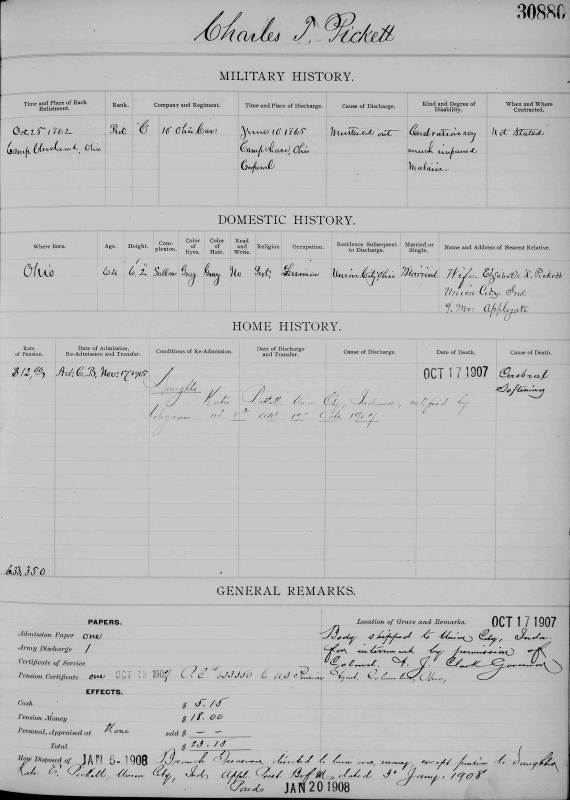 30880
Charles T. Pickett
MILITARY HISTORY.
Time and Place of Each Enlistment. Rank. Company and Regiment. Time and Place of Discharge. Cause of Discharge. Kind and Degree of Disability. When and Where Contracted.
Oct 25" 1862 Pvt C 10 Ohio Cav: June 10 1865 Mustered out Not Stated
Camp Cleveland, Ohio Camp Chase, Ohio much impaired
Corporal Malaria.
DOMESTIC HISTORY.
Where Born. Age. Height. Complexion. Color of Eyes. Color of Hair. Read and Write. Religion Occupation. Residence Subsequent to Discharge. Married or Single. Name and Address of Nearest Relative.
Ohio 64 6'2 Sallow Gray Gray No Prot; Farmer Union City, Ohio Married Wife. Elizabeth Pickett
Union City, Ind.
Applegate
HOME HISTORY.
Rate of Pension. Date of Admission, Re-Admission and Transfer. Conditions of Re-Admission. Date of Discharge and Transfer. Cause of Discharge. Date of Death. Cause of Death.
$12.00 Ad; C.B, Nov: 17 1905 OCT 17 1907 Cerebral
Softening
Daughter
Pickett, Union City, Indiana, notified by
telegram 1907
633,350
GENERAL REMARKS.
PAPERS. Location of Grave and Remarks. OCT 17 1907
Admission Paper one
Army Discharge 1
Certificate of Service
Body shipped to Union City, Inda.
for interment by permission of
Colonel. Clark Governor
Pension Certificate one OCT 19 1907 633350 to US Pension Agent, Columbus, Ohio,
EFFECTS.
Cash $ 5.15
Pension Money $ 18.00
Personal, Appraised at None sold $ – –
Total $ 23.15
How Disposed of JAN 6 - 1908 Branch Treasurer directed to turn over money, except pension to daughter
Kate E. Pickett, Union City, Ind; Appl. B of M, dated 3d Jany, 1908
Paid JAN 20 1908